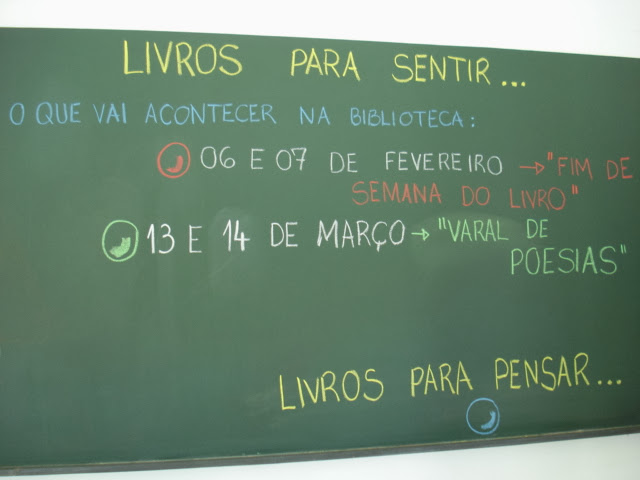 LIVROS PARA SENTIR...
O QUE VAI ACONTECER NA BIBLIOTECA:
06 E 07 DE FEVEREIRO → "FIM DE
SEMANA DO LIVRO"
13 E 14 DE MARÇO → "VARAL DE
POESIAS"
LIVROS PARA PENSAR...